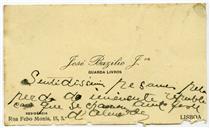 José Bazilio J.or
GUARDA LIVROS
Sentidissimos pesames pela
perda do eminente republi
cano que se chamou José
d'Almeida
RESIDENCIA
Rua Febo Moniz, 13, 3.º
LISBOA